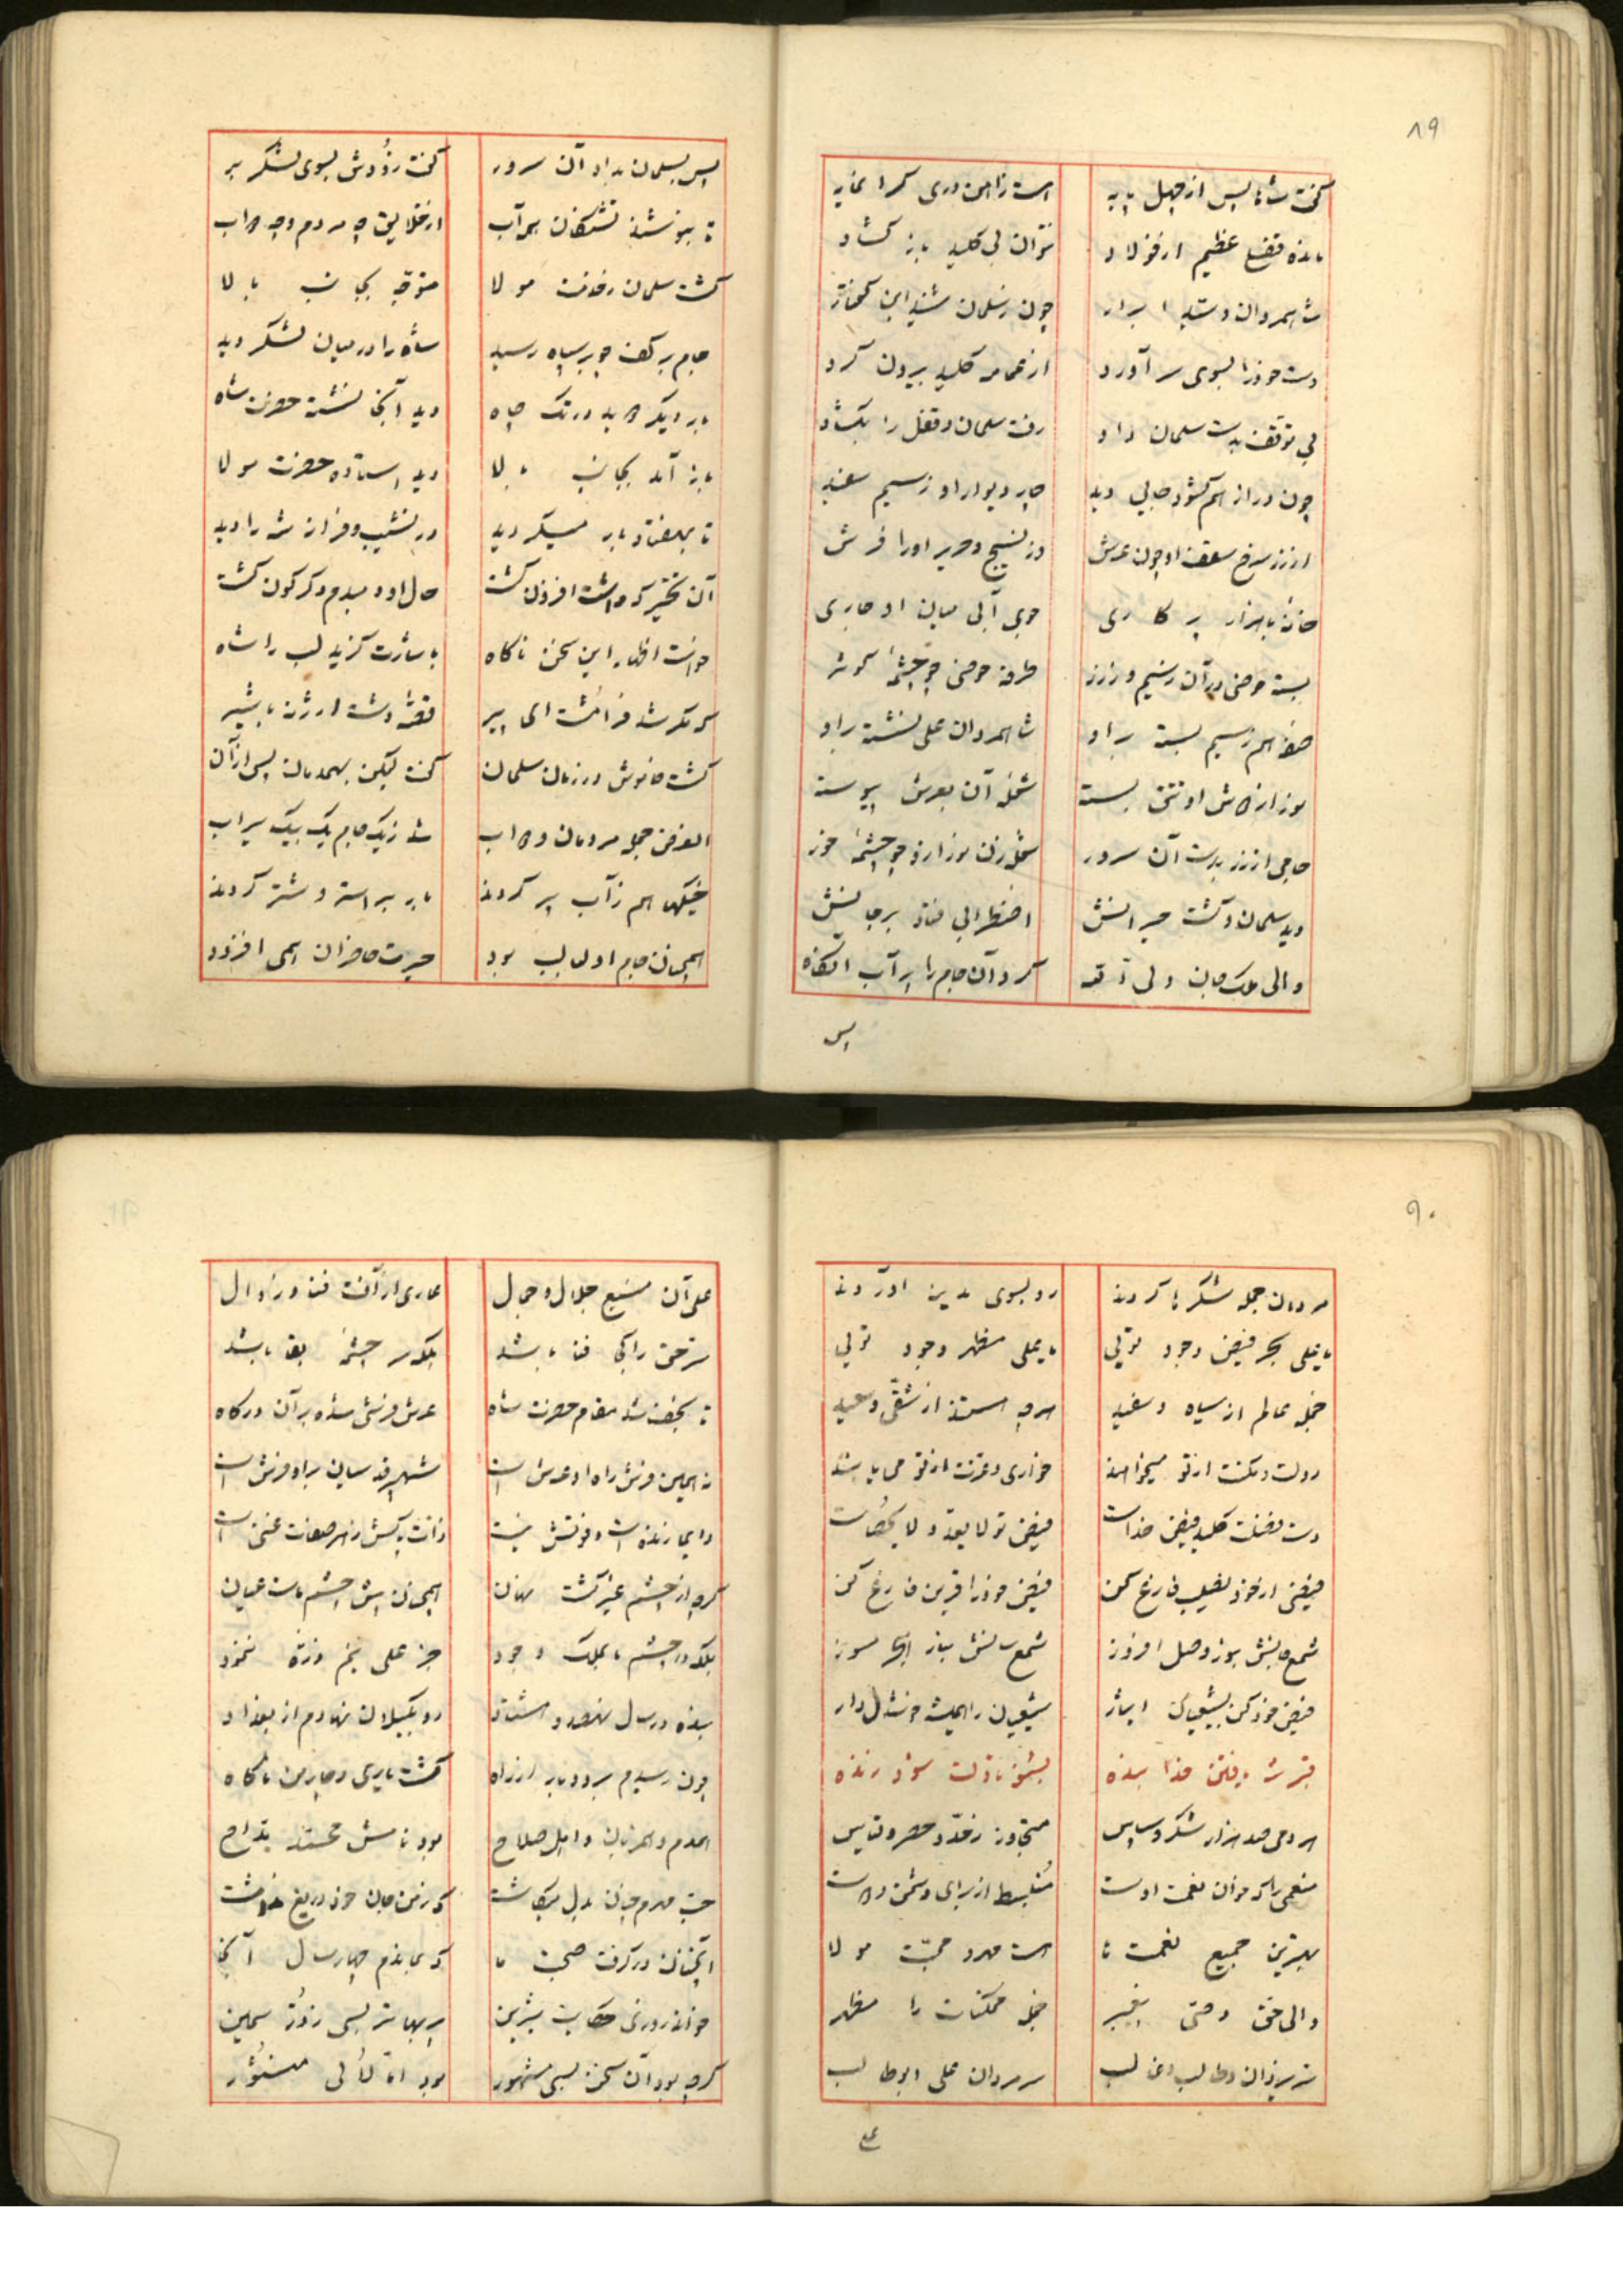 ۸۹
گفت شاها پس از چهل پایه
است زاهن دری گرانمایه
مانده قفلی عظیم از فولاد
نتوان بی کلید باز گشاد
شاهمردان و سید ابرار
چون ز سلمان شنید این گفتار
دست خود را بسوی سر آورد
از عمامه کلید بیرون کرد
بی توقف بدست سلمان داد
رفت سلمان و قفل را بگشاد
چون در از هم گشود جایی دید
چار دیوار او ز سیم سفید
از زر سرخ سقف او چون عرش
وز نسیج و حریر او را فرش
خانه با هزار پر کاری
جوی آبی میان او جاری
بسته حوضی در آن ز سیم و ز زر
طرفه حوضی چو چشمه کوثر
صفه هم ز سیم بسته براو
شاهمردان علی نشسته براو
شعله آن بعرش پیوسته
جامی از زر بدست آن سرور
شعله زن نور ازو چو چشمه خور
دید سلمان و گشت حیرانش
اضطرابی فتاد برجانش
والی ملک جان ولی آله
کرد آن جام را پر آب آنگاه
پس
پس بسلمان بداد آن سرور
گفت رو زودش بسوی لشکر بر
تا بنوشند تشنگان هم آب
از خلایق چه مردم و چه دواب
گشت سلمان رخدمت مولا
متوجه بجانب بالا
جام بر کف چو بر سپاه رسید
شاه را در میان لشکر دید
بار دیگر دوید در تک چاه
دید آنجا نشسته حضرت شاه
باز آمد بجانب بالا
دید استاده حضرت مولا
تا بهفتاد بار میگردید
در نشیب و فراز شه را دید
آن تحیر که داشت افزون گشت
حال او دمبدم دگرگون گشت
خواست اظهار این سخن ناگاه
باشارت گزید لب را شاه
که مگر شد فرامشت ای پیر
قصه دشت ارژنه با شیر
گشت خاموش در زمان سلمان
گفت لیکن بهمدمان پس از آن
الغرض جمله مردمان و دواب
شد ز یک جام یک بیک سیراب
خیکها هم ز آب پر کردند
بار بر استر و شتر کردند
همچنان جام اول لب بود
حیرت حاضران همی افزود
۹۰
مردمان جمله شکرها کردند
رو بسوی مدین آوردند
یا علی بحر فیض وجود تویی
یا علی مظهر وجود تویی
جمله عالم از سیاه و سفید
هرچه هستند از شقی و سعید
دولت و مکنت از تو میخواهند
خواری و عزت از تو می یابند
دست فضلت کلید فیض خداست
فیض تو لا یعد و لا یحصاست
فیضی از خود نصیب فارغ کن
فیض خود را قرین فارغ کن
شمع جانش بنور وصل افروز
فیض خود کن بشیعیان ایثار
شیعیان را همیشه خوشدل دار
بشنو تا دلت شود زنده
هر دمی صد هزار شکر و سپاس
متجاوز ز حد و حصر و قیاس
منعمی را که خوان نعمت اوست
منبسط از برای دشمن و دوست
بهترین جمیع نعمت ها
هست مهر و محبت مولا
والی حق وصی پیغمبر
جمله ممکنات را مظهر
شیر یزدان و طالب و غالب
سر مردان علی ابوطالب
علی
علی آن منبع جلال و جمال
عاری از آفت فنا و زوال
سر حق را کجا فنا باشد
بلکه سر چشمه بقا باشد
تا نجف شد مقام حضرت شاه
عرش فرشی شده بر آن درگاه
نه همین فرش راه او عرش است
شهپر قدسیان براو فرش است
دایما زنده است و فوتش نیست
گرچه از چشم غیر گشت نهان
همچنان پیش چشم ماست عیان
بلکه در چشم ما بملک وجود
جز علی نیم ذره ننمود
بنده در سال نهصد و هشتاد
رو بگیلان نهادم از بغداد
گشت یاری دچار من ناگاه
همدم و مهربان و اهل صلاح
بود نامش محمد مداح
حب مردم چنان بدل میکاشت
که ز من جان خود دریغ نداشت
آنچنان در گرفت صحبت ما
که بماندم چهار سال آنجا
خواند روزی حکایت شیرین
گرچه بود آن سخن بسی مشهور
بود اما لآلی منثور